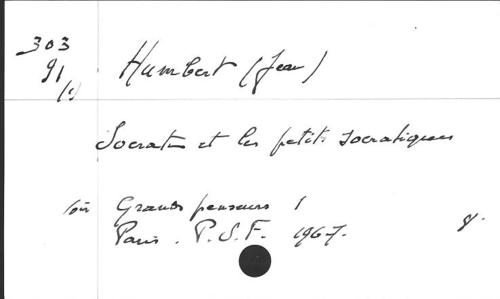 303
91
(1)
Humbert (Jean)
Socrate et les petits socratiques
Grands penseurs 1
Paris. P.S.F. 1967.
8.